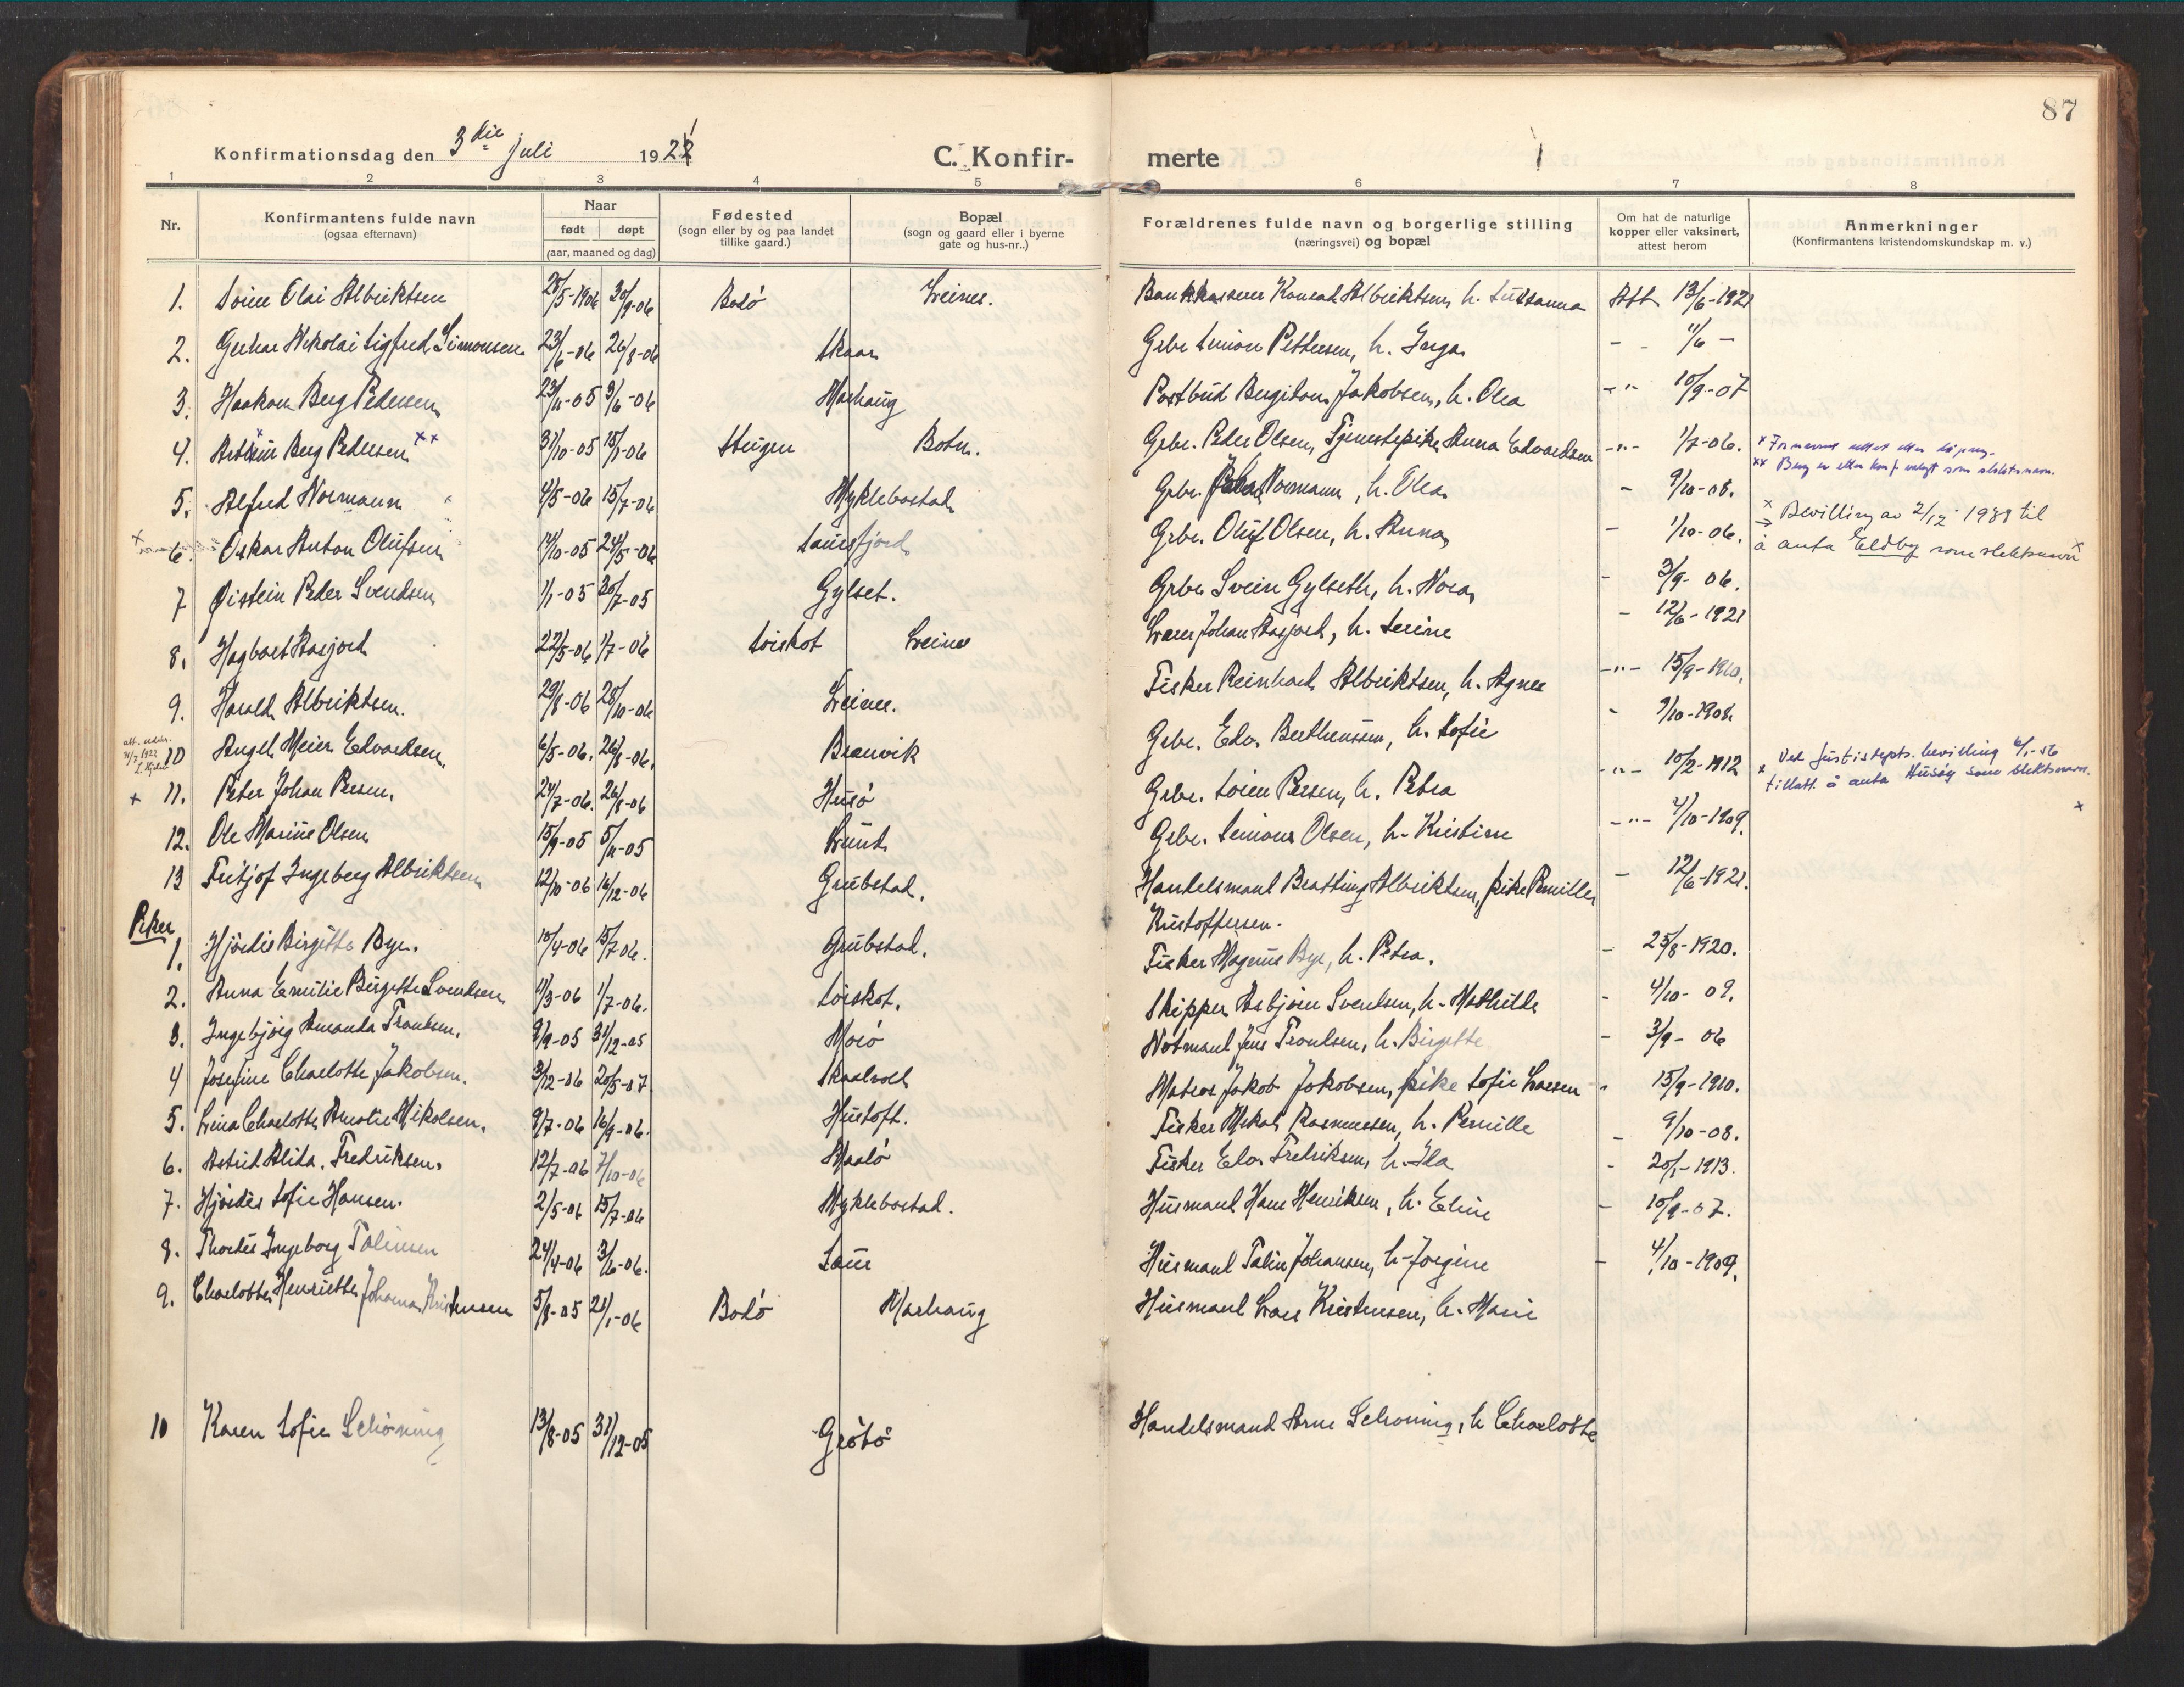 87
Konfirmationsdag den 3die juli 1921 C. Konfir- merte
1 2 3 4 5 6 7 8
Nr. Konfirmantens fulde navn (ogsaa efternavn) Naar født døpt (aar, maaned og dag) Fødested (sogn eller by og paa landet tillike gaard.) Bopæl (sogn og gaard eller i byerne gate og hus-nr..) Forældrenes fulde navn og borgerlige stilling (næringsvei) og bopæl Om hat de naturlige kopper eller vaksinert, attest herom Anmerkninger (Konfirmantens kristendomskundskap m. v.)
1. Olai Albriktsen 28/5-1906 30/9-06 Bodö Leines. Bankkasserer Konrad Albriktsen, h. Sussanna Att. 13/6-1921
2. Gerhar Nikolai Sigfred Simonsen 23/6-06 26/8-06 Skaar Grbr. Simon Pettersen, h. Inga - - 11/6 -
3. Haakon Berg Pedersen 23/11-05 3/6-06 Marhaug Postbud Bergiton Jakobsen, h. Olea -"- 10/9-07
4. Berg Pedersen xx 31/10-05 15/1-06 Steigen Botn. Grbr. Peder Olsen, Tjenestepike Anna Edvardsen -"- 1/7-06. x Fornavnet rettet efter
xx Berg er etter konf valgt som slektsnavn.
5. Alfred Normann 4/5-06 15/7-06 Myklebostad Grbr. Normann, h. Olea - 9/10-08.
x 6. Oskar Anton Olufsen 14/10-05 24/5-06 Saursfjord Grbr. Oluf Olsen, h. Anna - 1/10-06. x Bevilling av 2/12 1939 til
å anta Eldby som slektsnavn x
7 Øistein Peder Svendsen 1/1-05 30/7-05 Gylset. Grbr. Svein Gylseth, h. Nora - 3/9-06.
8. Hagbart Aasjord 22/5-06 1/7-06 Löiskot Leines Lærer Johan Aasjord, h. Serine - 12/6-1921
9. Harald Albriktsen. 29/8-06 28/10-06 Leines. Fisker Reinhard Albriktsen, h. Agnes -"- 15/9-1910.
10 Angel Meier Edvardsen. 6/5-06. 26/8-06. Brauvik Grbr. Edv. Berthenssen, h. Sofie - 9/10-1908.
x 11. Peter Johan Persen. 24/7-06. 26/8-06 Husö Grbr. Sören Persen, h. Petra -"- 10/2-1912 x Ved Justisdepts. bevilling 6/1-56
tillatt å anta Husøy som slektsnavn. x
12. Ole Marius Olsen 15/9-05 5/11-05 Lund Grbr. Simon Olsen, h. Kristine -"- 4/10-1909.
13 Fritjof Ingeberg Albriktsen 12/10-06 16/12-06 Grubstad. Handelsmand Bratting Albriktsen, pike Pernille
Kristoffersen. - 12/6-1921.
Piker
1. Hjördis Birgitte Bye. 15/4-06 15/7-06. Grubstad. Fisker Magnus Bye, h. Petra. - 25/8-1920.
2. Anna Emilie Birgitte Svendsen 11/3-06 1/7-06. Löiskot. Skipper Asbjörn Svendsen, h. Mathilde - 4/10-09.
3. Ingebjörg Amanda Traulsen. 9/9-05 31/12-05 Moiö Notmand Jens Traulsen, h. Birgitte - 3/9-06
4 Josefine Charlotte Jakobsen. 3/12-06 20/5-07. Skaalvold Matros Jakob Jakobsen, pike Sofie Larsen - 15/9-1910.
5. Lina Charlotte Amalie Nikolsen. 9/7-06 16/9-06. Hustoft. Fisker Nikol. Rasmussen, h. Pernille - 9/10-08.
6. Astrid Alida. Fredriksen. 12/7-06 7/10-06 Maalö Fisker Edv. Fredriksen, h. Ida - 20/1-1913.
7. Hjördis Sofie Hansen. 2/5-06 15/7-06 Myklebostad. Husmand Hans Henriksen, h. Eline - 10/9-07.
8. Thordis Ingeborg Tolinsen 24/4-06 3/6-06. Saur Husmand Tolin Johansen, h. Jörgine - 4/10-1909.
9. Charlotte Henriette Johanna Kristensen 5/8-05 21/1-06 Bodö Marhaug Husmand Lars Kristensen, h. Marie
10 Karen Sofie Schöning 13/8-05 31/12-05 Grötö Handelsmand Arne Schöning, h Charlotte